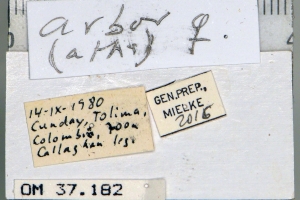 arbor ♀.
14-IX-1980
Cunday, Tolima,
Colombia,
Callaghan leg.
GEN.PREP.,
MIELKE
2016
OM 37.182